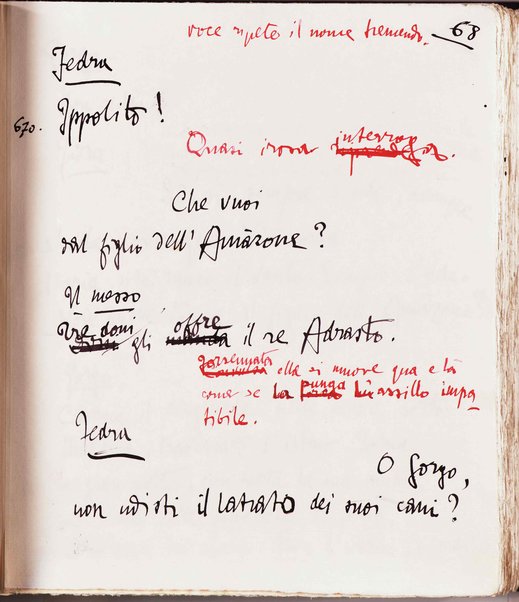 voce ripete il nome tremendo.
68
Fedra
670.
Ippolito!
Quasi irosa interroga.
Che vuoi
dal figlio dell'Amàzone?
Il messo
Tre doni gli offre il re Adrasto.
ella si muove qua e là
come se la punga l'assillo impla
tibile.
Fedra
O Gorgo,
non udisti il latrato dei suoi cani?